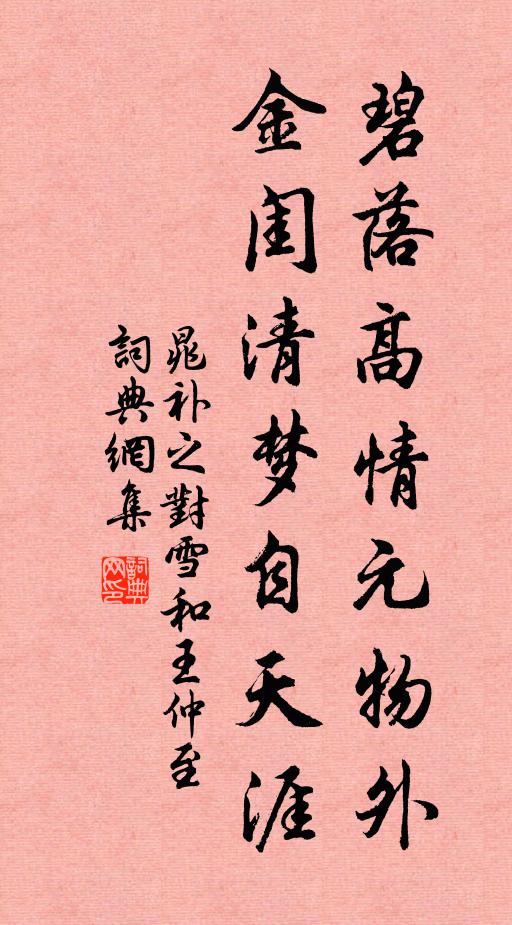 碧落高情元物外
金闺清梦自天涯
晁补之對雪和王仲至
詞典網集
詞典网印